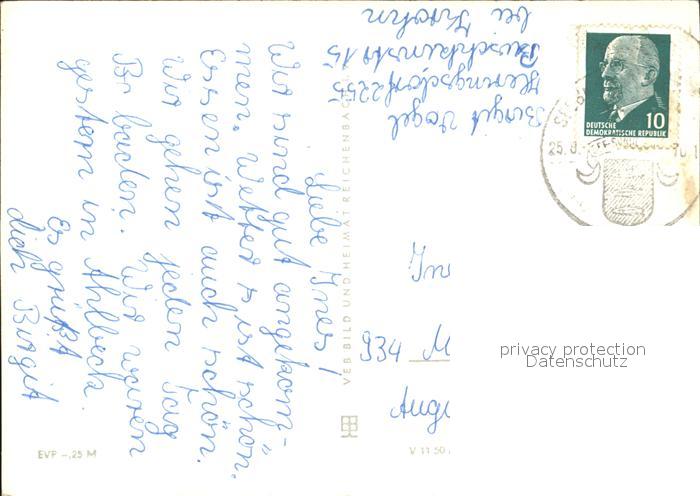 Liebe Ines!
Wir sind gut angekom-
men. Wetter ist schön.
Essen ist auch schön.
Wir gehen jeden Tag
Br baden. Wir waren
gestern in Ahlbeck.
Es grüßt
dich Birgit
Birgit Vogel
Heringsdorf 2255
Puschkinstr 15
bei
VEB BILD UND HEIMAT REICHENBACH
10
DEUTSCHE
DEMOKRATISCHE REPUBLIK
25.8.
In
934 M
Aug
privacy protection
Datenschutz
EVP –,25 M
V 11 50